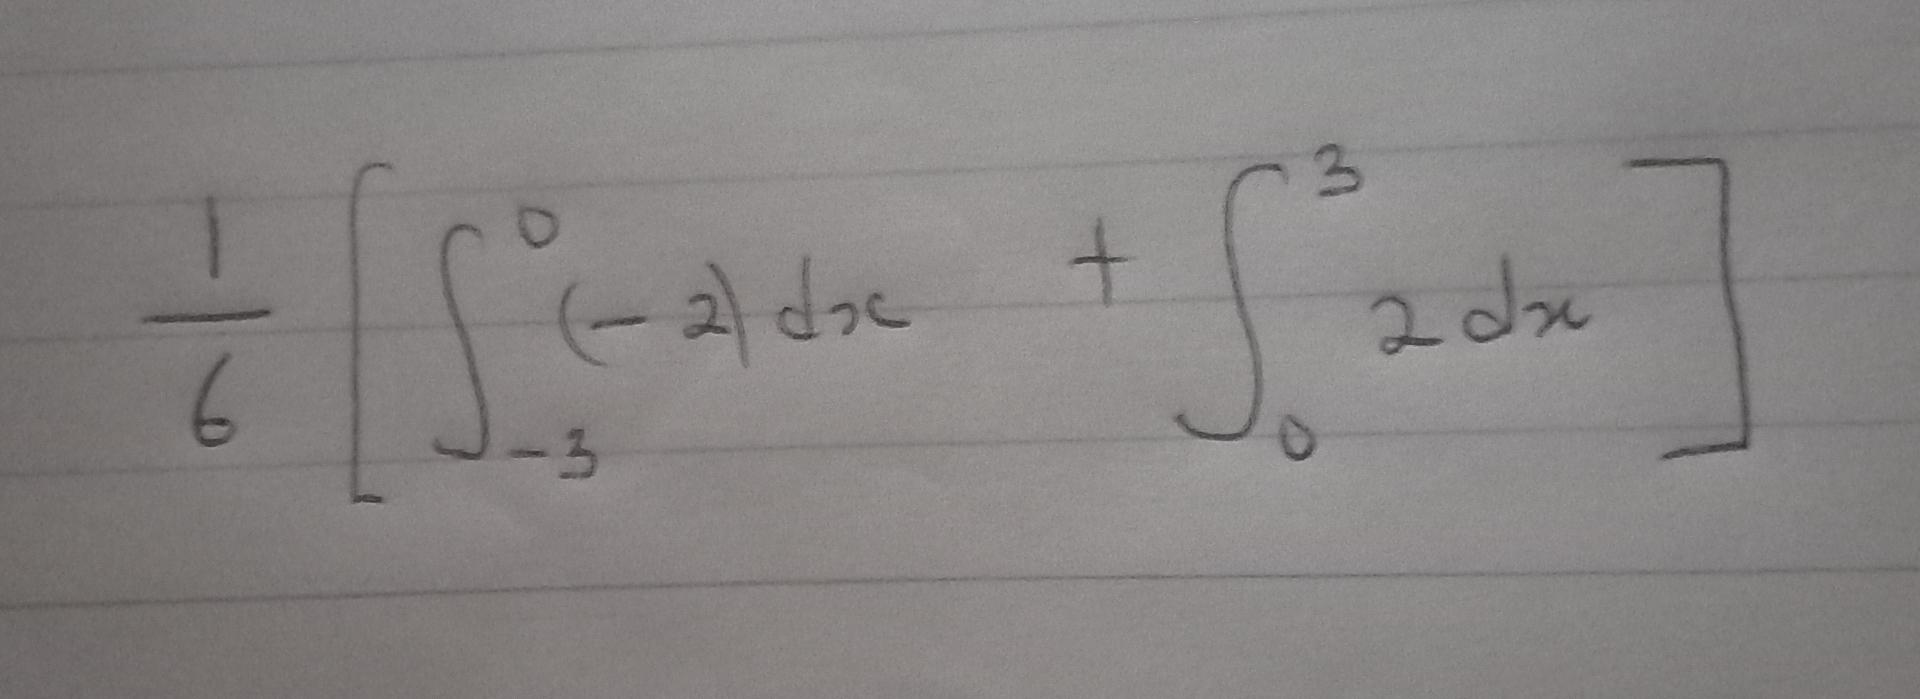 1/6 [ ∫_{-3}^{0} (-2) dx + ∫_{0}^{3} 2 dx ]